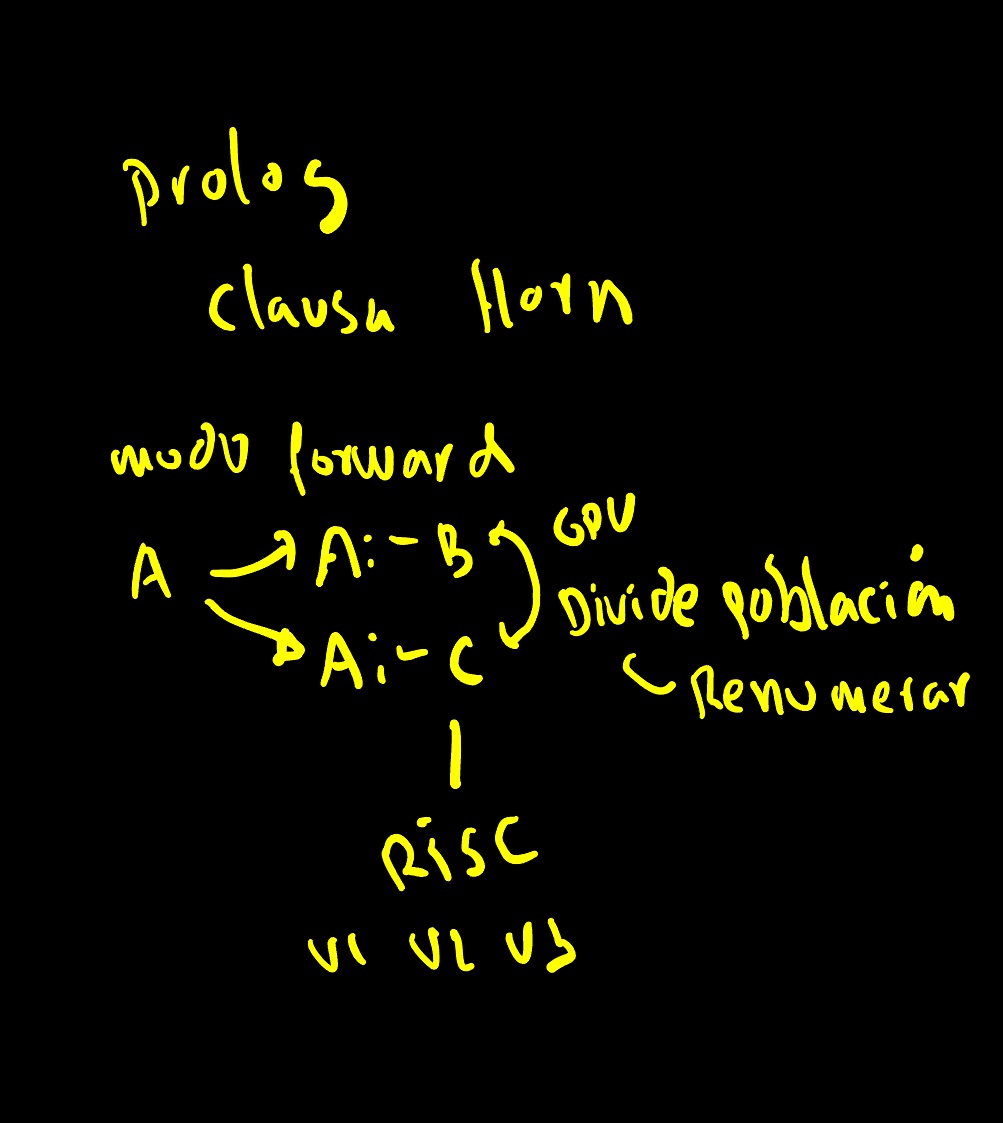 prolog
clausa Horn
modo forward
A A:- B GPU
Divide población
A:- C
Renumerar
RISC
V1 V2 V3